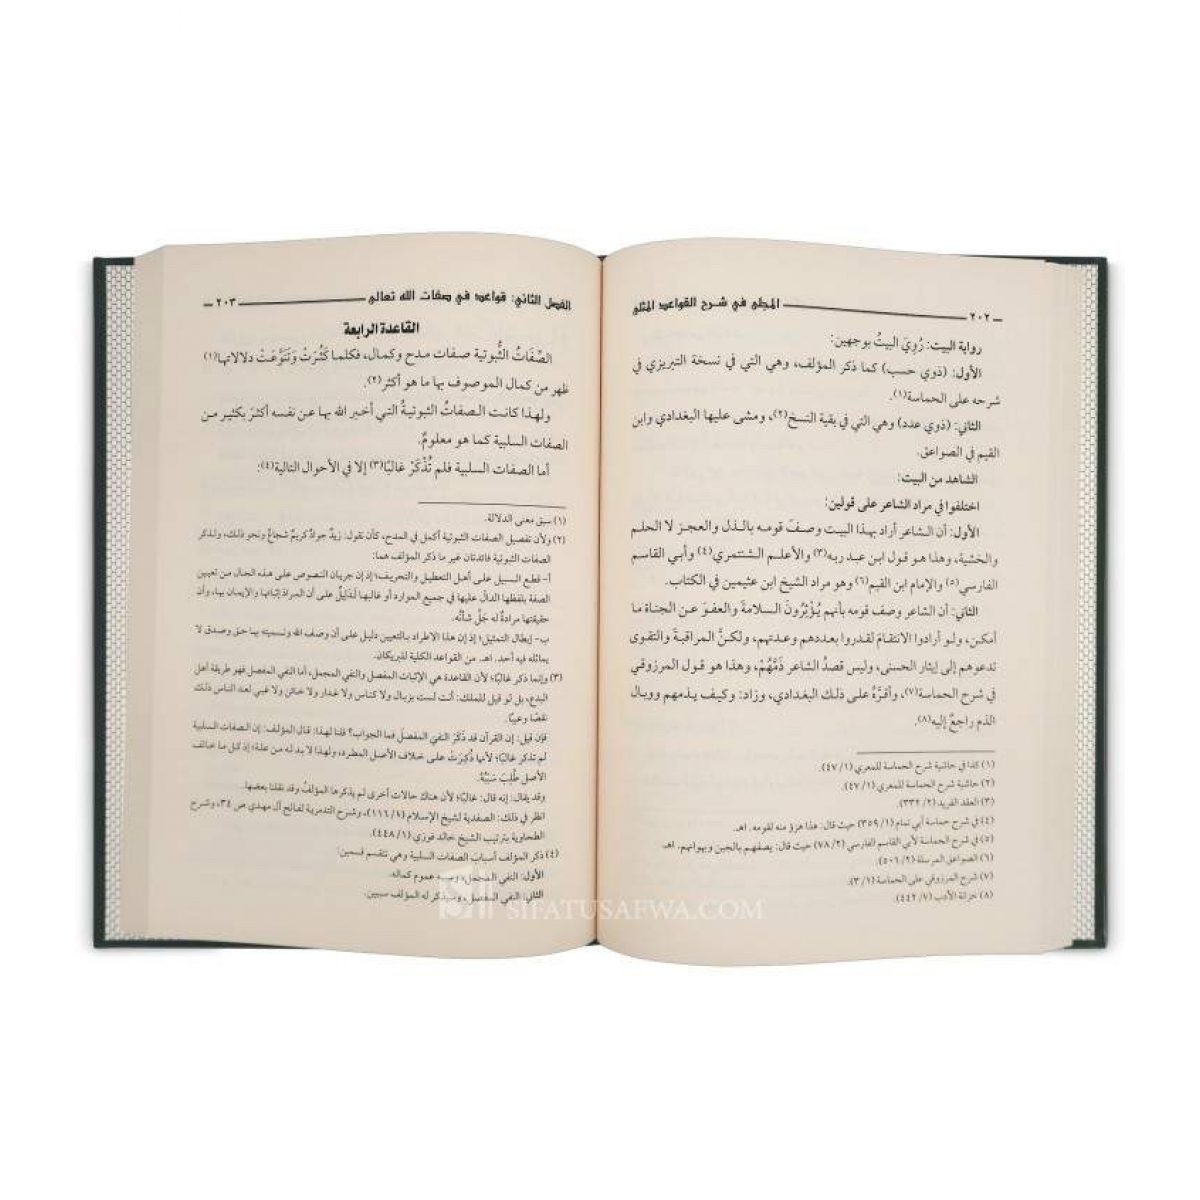 ـ ٢٠٢ ـ المجلى في شرح القواعد المثلى
رواية البيت: رُوِيَ البيتُ بوجهين:
الأول: (ذوي حسب) كما ذكر المؤلف، وهي التي في نسخة التبريزي في
شرحه على الحماسة(١).
الثاني: (ذوي عدد) وهي التي في بقية النسخ(٢)، ومشى عليها البغدادي وابن
القيم في الصواعق.
الشاهد من البيت:
اختلفوا في مراد الشاعر على قولين:
الأول: أن الشاعر أراد بهذا البيت وصفَ قومه بالذل والعجز لا الحلم
والخشية، وهذا هو قول ابن عبد ربه(٣) والأعلم الشنتمري(٤) وأبي القاسم
الفارسي (٥) والإمام ابن القيم(٦) وهو مراد الشيخ ابن عثيمين في الكتاب.
الثاني: أن الشاعر وصف قومه بأنهم يُؤْثِرُونَ السلامةَ والعفوَ عن الجناة ما
أمكن، ولو أرادوا الانتقامَ لقدروا بعددهم وعدتهم، ولكنَّ المراقبة والتقوى
تدعوهم إلى إيثار الحسنى، وليس قصدُ الشاعر ذَمَّهُمْ، وهذا هو قول المرزوقي
في شرح الحماسة(٧)، وأقرَّهُ على ذلك البغدادي، وزاد: وكيف يذمهم ووبال
الذم راجعٌ إليه(٨).
(١) كذا في حاشية شرح الحماسة للمعري (١/ ٤٧).
(٢) حاشية شرح الحماسة للمعري (١/ ٤٧).
(٣) العقد الفريد (٢/ ٣٣٢).
(٤) في شرح حماسة أبي تمام (١/ ٣٥٩) حيث قال: هذا هزؤ منه لقومه. اهـ
(٥) في شرح الحماسة لأبي القاسم الفارسي (٢/ ٧٨) حيث قال: يصفهم بالجبن ويهوانهم. اهـ
(٦) الصواعق المرسلة (٢/ ٥٠٦).
(٧) شرح المرزوقي على الحماسة (١/ ٣).
(٨) خزانة الأدب (٧/ ٤٤٢).
الفصل الثاني: قواعد في صفات الله تعالى ـ ٢٠٣ ـ
القاعدة الرابعة
الصِّفَاتُ الثُّبوتية صفات مدح وكمال، فكلما كَثُرَتْ وَتَنَوَّعَتْ دلالاتها(١)
ظهر من كمال الموصوف بها ما هو أكثر(٢).
ولهذا كانت الصفاتُ الثبوتيةُ التي أخبر الله بها عن نفسه أكثرَ بكثير من
الصفات السلبية كما هو معلومٌ.
أما الصفات السلبية فلم تُذْكَرْ غالبًا(٣) إلا في الأحوال التالية(٤).
(١) سبق معنى الدلالة.
(٢) ولأن تفصيل الصفات الثبوتية أكمل في المدح، كأن نقول: زيدٌ جوادٌ كريمٌ شجاعٌ ونحو ذلك، ولذكر
الصفات الثبوتية فائدتان غير ما ذكر المؤلف هما:
أ- قطع السبيل على أهل التعطيل والتحريف؛ إذ إن جريان النصوص على هذه الحال من تعيين
الصفة بلفظها الدالِّ عليها في جميع الموارد أو غالبها لَدَلِيلٌ على أن المرادَ إثباتها والإيمان بها، وأن
حقيقتها مرادةٌ له جَلَّ شأنُه.
ب- إبطال التمثيل؛ إذ إن هذا الاطراد بالتعيين دليل على أن وصف الله وتسميته بها حق وصدق لا
يماثله فيه أحد. اهـ من القواعد الكلية للبريكان.
(٣) وإنما ذكر غالبًا؛ لأن القاعدة هي الإثبات المفصل والنفي المجمل، أما النفي المفصل فهو طريقة أهل
البدع، بل لو قيل للملك: أنت لست بزبال ولا كناس ولا غدار ولا خائن ولا غبي لعد الناس ذلك
نقصًا وعيبًا.
فإن قيل: إن القرآن قد ذَكَرَ النفيَ المفصلَ فما الجواب؟ قلنا لهذا: قال المؤلف: إن الصفات السلبية
لم تذكر غالبًا؛ لأنها ذُكِرَتْ على خلاف الأصل المطرد، ولهذا لا بد له من علة؛ إذ كل ما خالف
الأصل طُلِبَ سَبَبُهُ.
وقد يقال: إنه قال: غالبًا؛ لأن هناك حالات أخرى لم يذكرها المؤلفُ وقد نقلنا بعضها.
انظر في ذلك: الصفدية لشيخ الإسلام (٢/ ١١٦)، وشرح التدمرية لفالح آل مهدي ص ٣٤، وشرح
الطحاوية بترتيب الشيخ خالد فوزي (١/ ٤٤٨).
(٤) ذكر المؤلف أسبابَ الصفات السلبية وهي تنقسم قسمين:
الأول: النفي المجمل، وسببه عموم كماله.
الثاني: النفي المفصل، وسيذكر له المؤلف سببين.
SIFATUSAFWA.COM